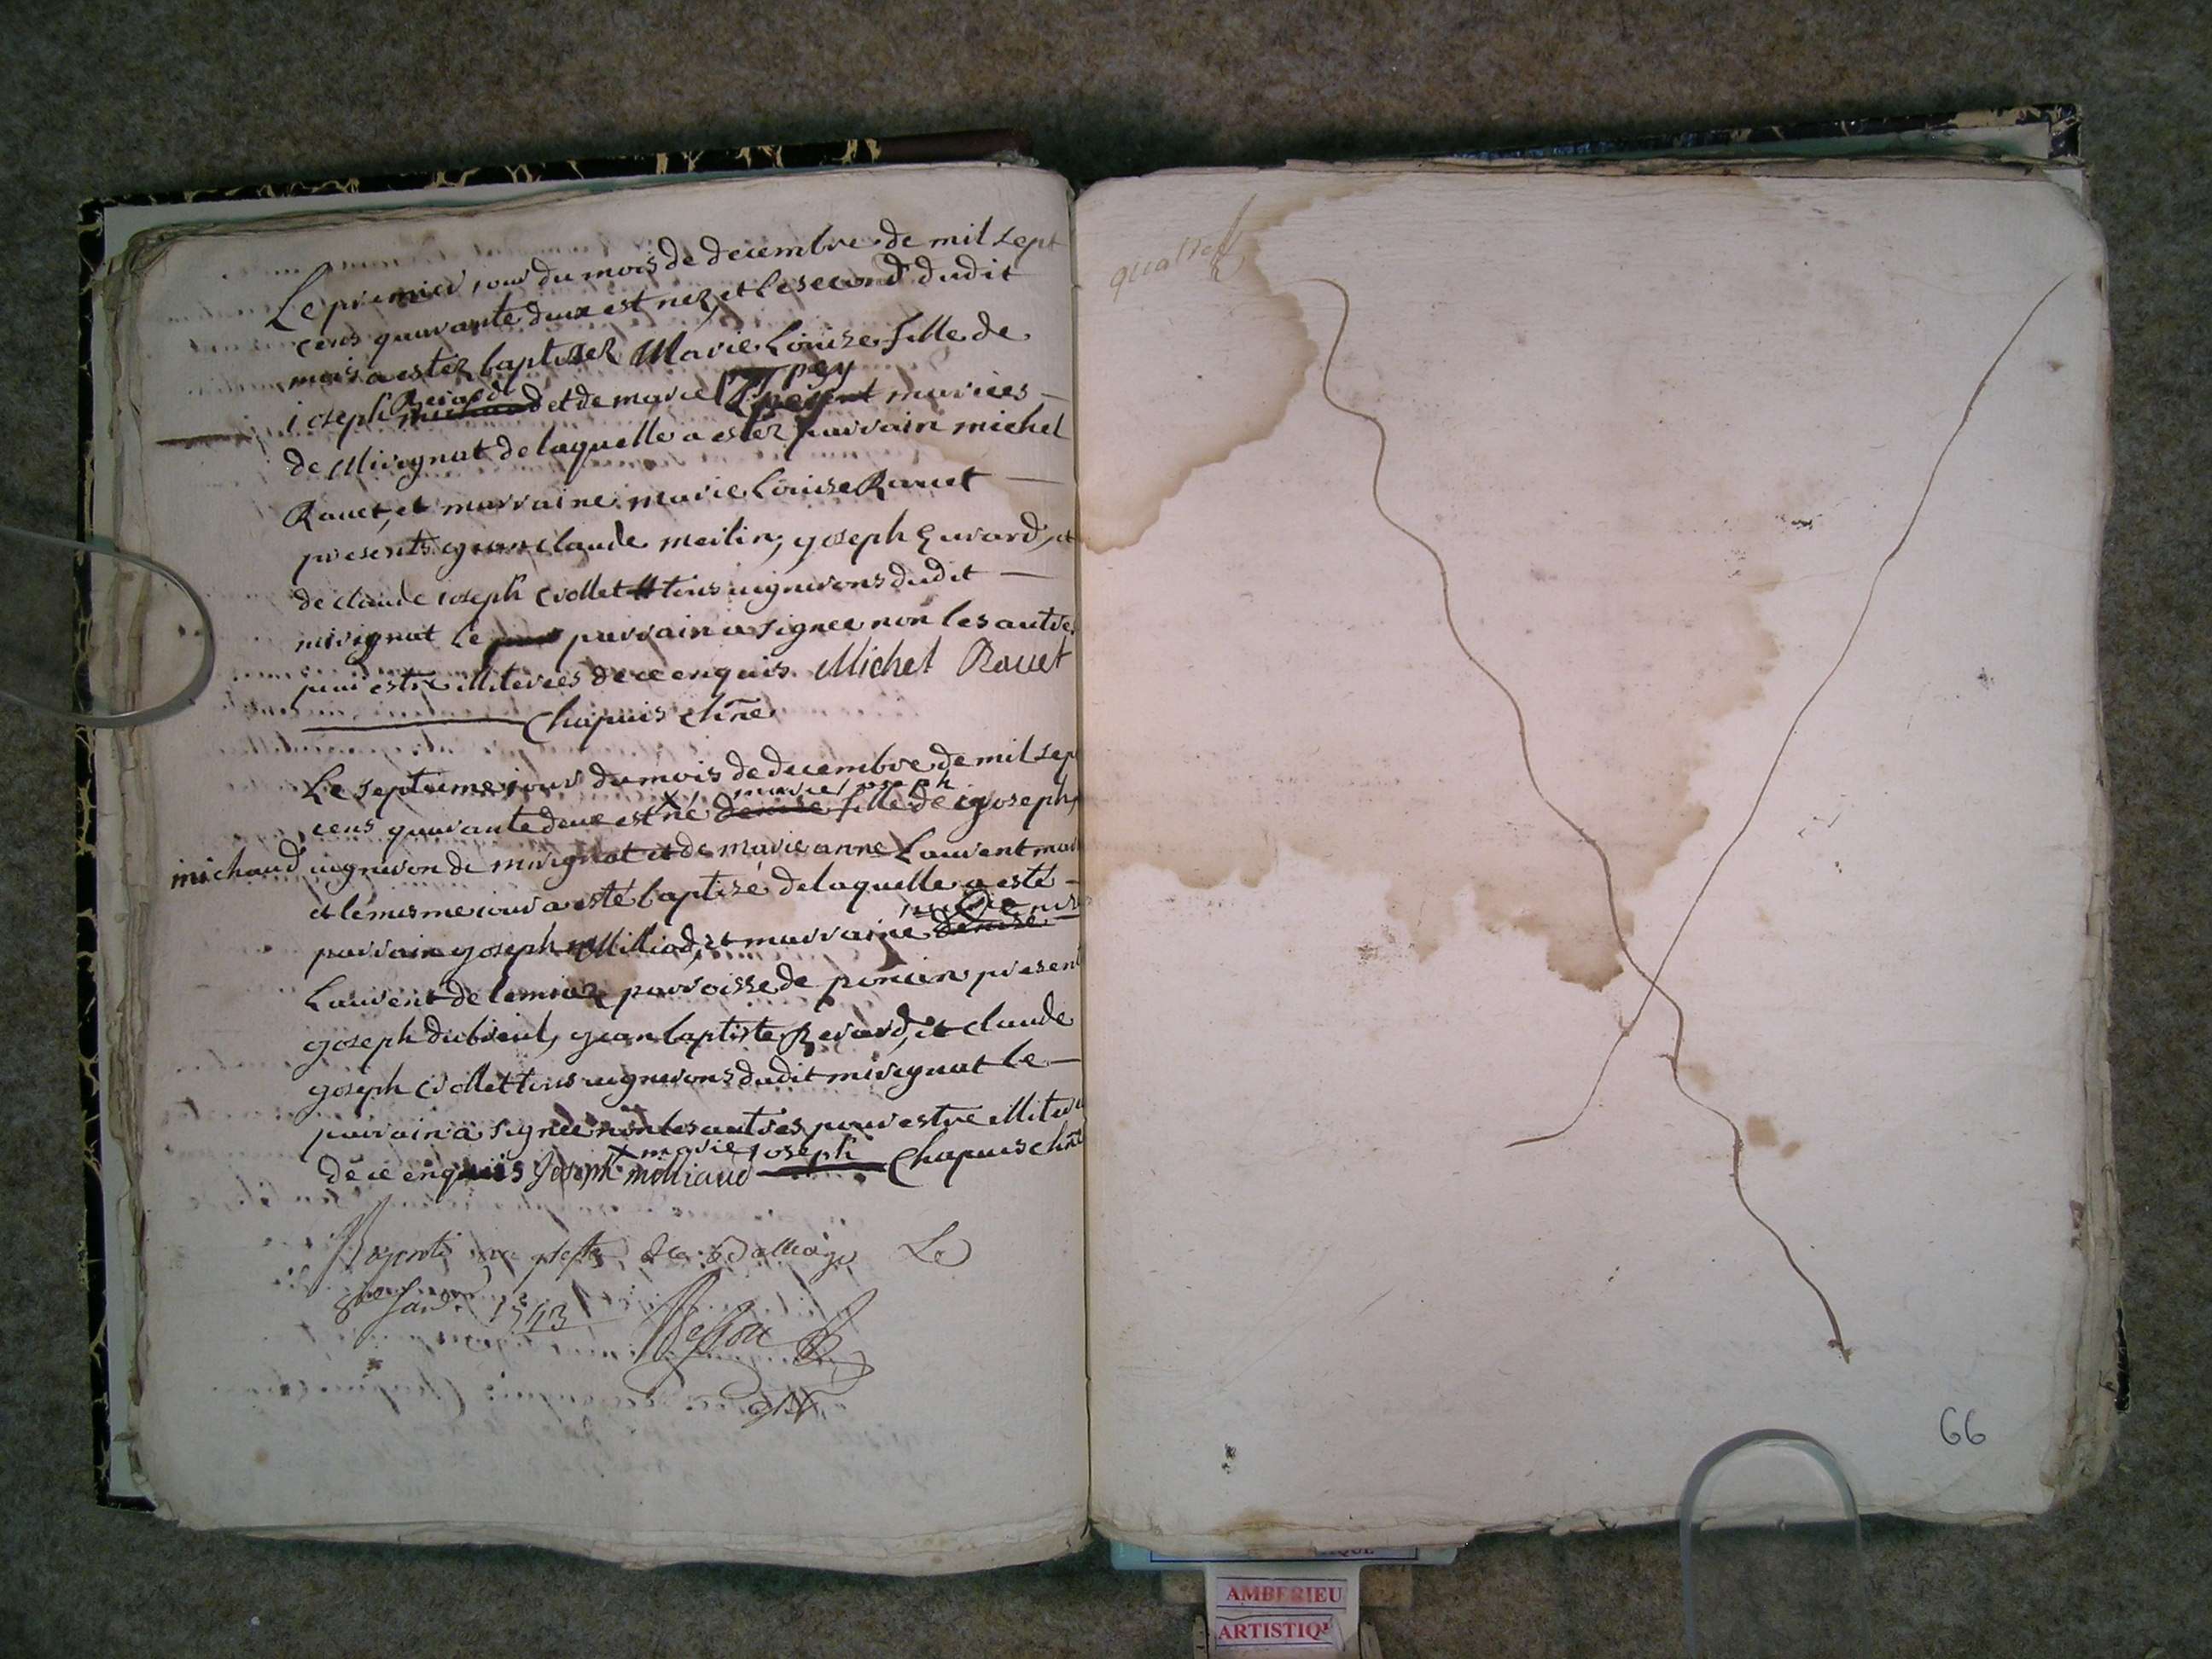 Le premier jour du mois de decembre de mil sept
cens quarante deux est nez et le second dudit
mois a estez baptisez Marie Louise fille de
Joseph Berard et de marie Tpey mariees
de Mirignat de laquelle a estez parrain michel
Rauet, et marraine marie Louise Rauet
presents gean claude meilin, goseph Evrard, et
de claude ioseph Crollet tous vignerons dudit
mirignat Le parrain a signee non les autres
pour estre illiterees de ce enquis. Michel Rauet
Chapuis chñe
Le septieme jour du mois de decembre de mil sep
marie joseph
cens quarante deux est né denise fille de goseph
michaud vigneron de mirignat et de marie anne Laurent mari
et le mesme jour a esté baptisé de laquelle a esté
parrain goseph Milliad, et marraine denise
Laurent de lemiaz parroisse de poncin present
goseph dubreul, gean baptiste Berard, et claude
goseph Crollet tous vignerons dudit mirignat le
parrain a signée non les autres pour estre illiter
x marie joseph
de ce enquis Joseph milliand Chapuis chñe
au greffe du Balliage Le
8me Janv. 1743
quatre
66
AMBERIEU
ARTISTIQ